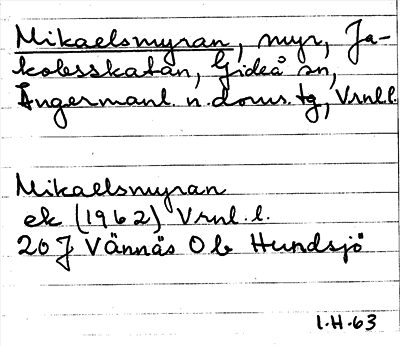 Mikaelsmyran, myr, Ja-
kobsskatan, Gideå sn,
Ångermanl. n. doms. tg, Vrnl.l.
Mikaelsmyran
ek (1962) Vrnl. l.
20 J Vännäs O b Hundsjö
I.H.63